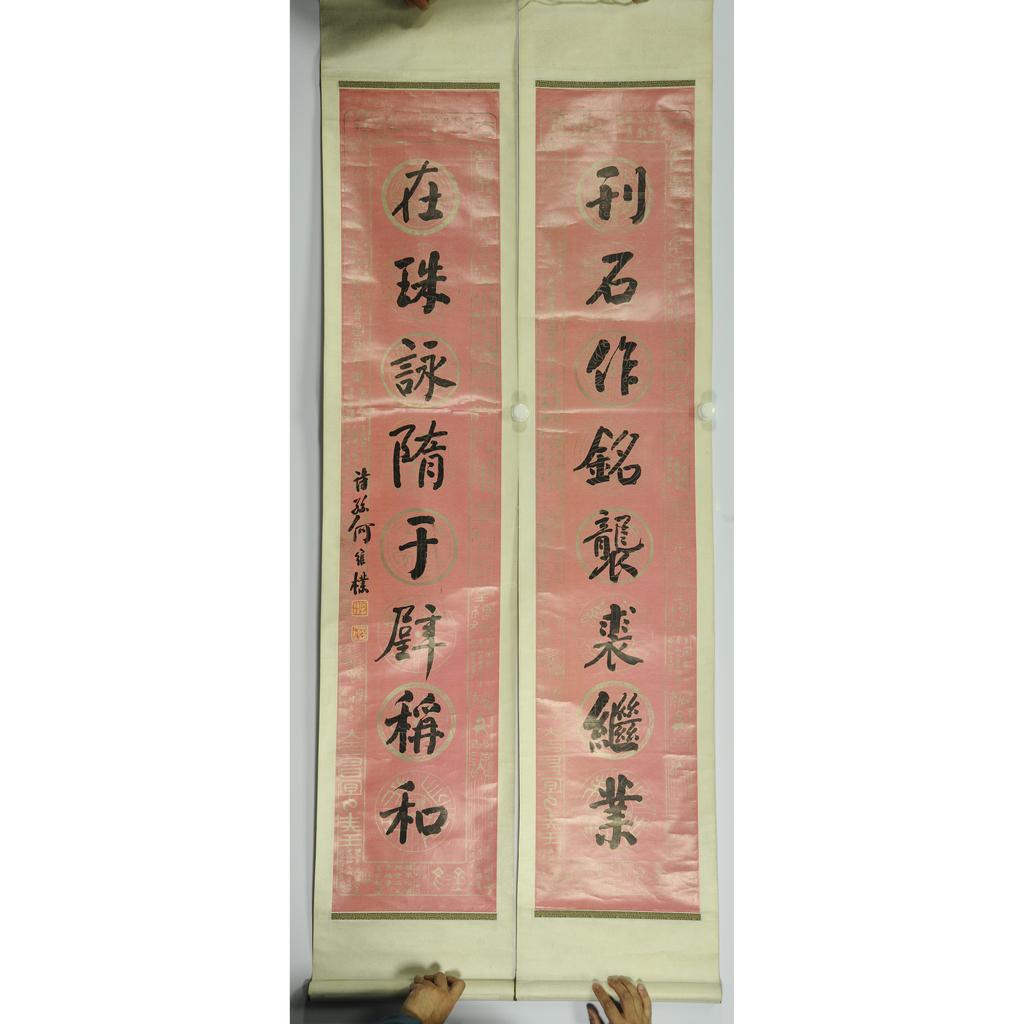 刊石作銘襲裘繼業
在珠詠隋于璧稱和
詩孫何維樸